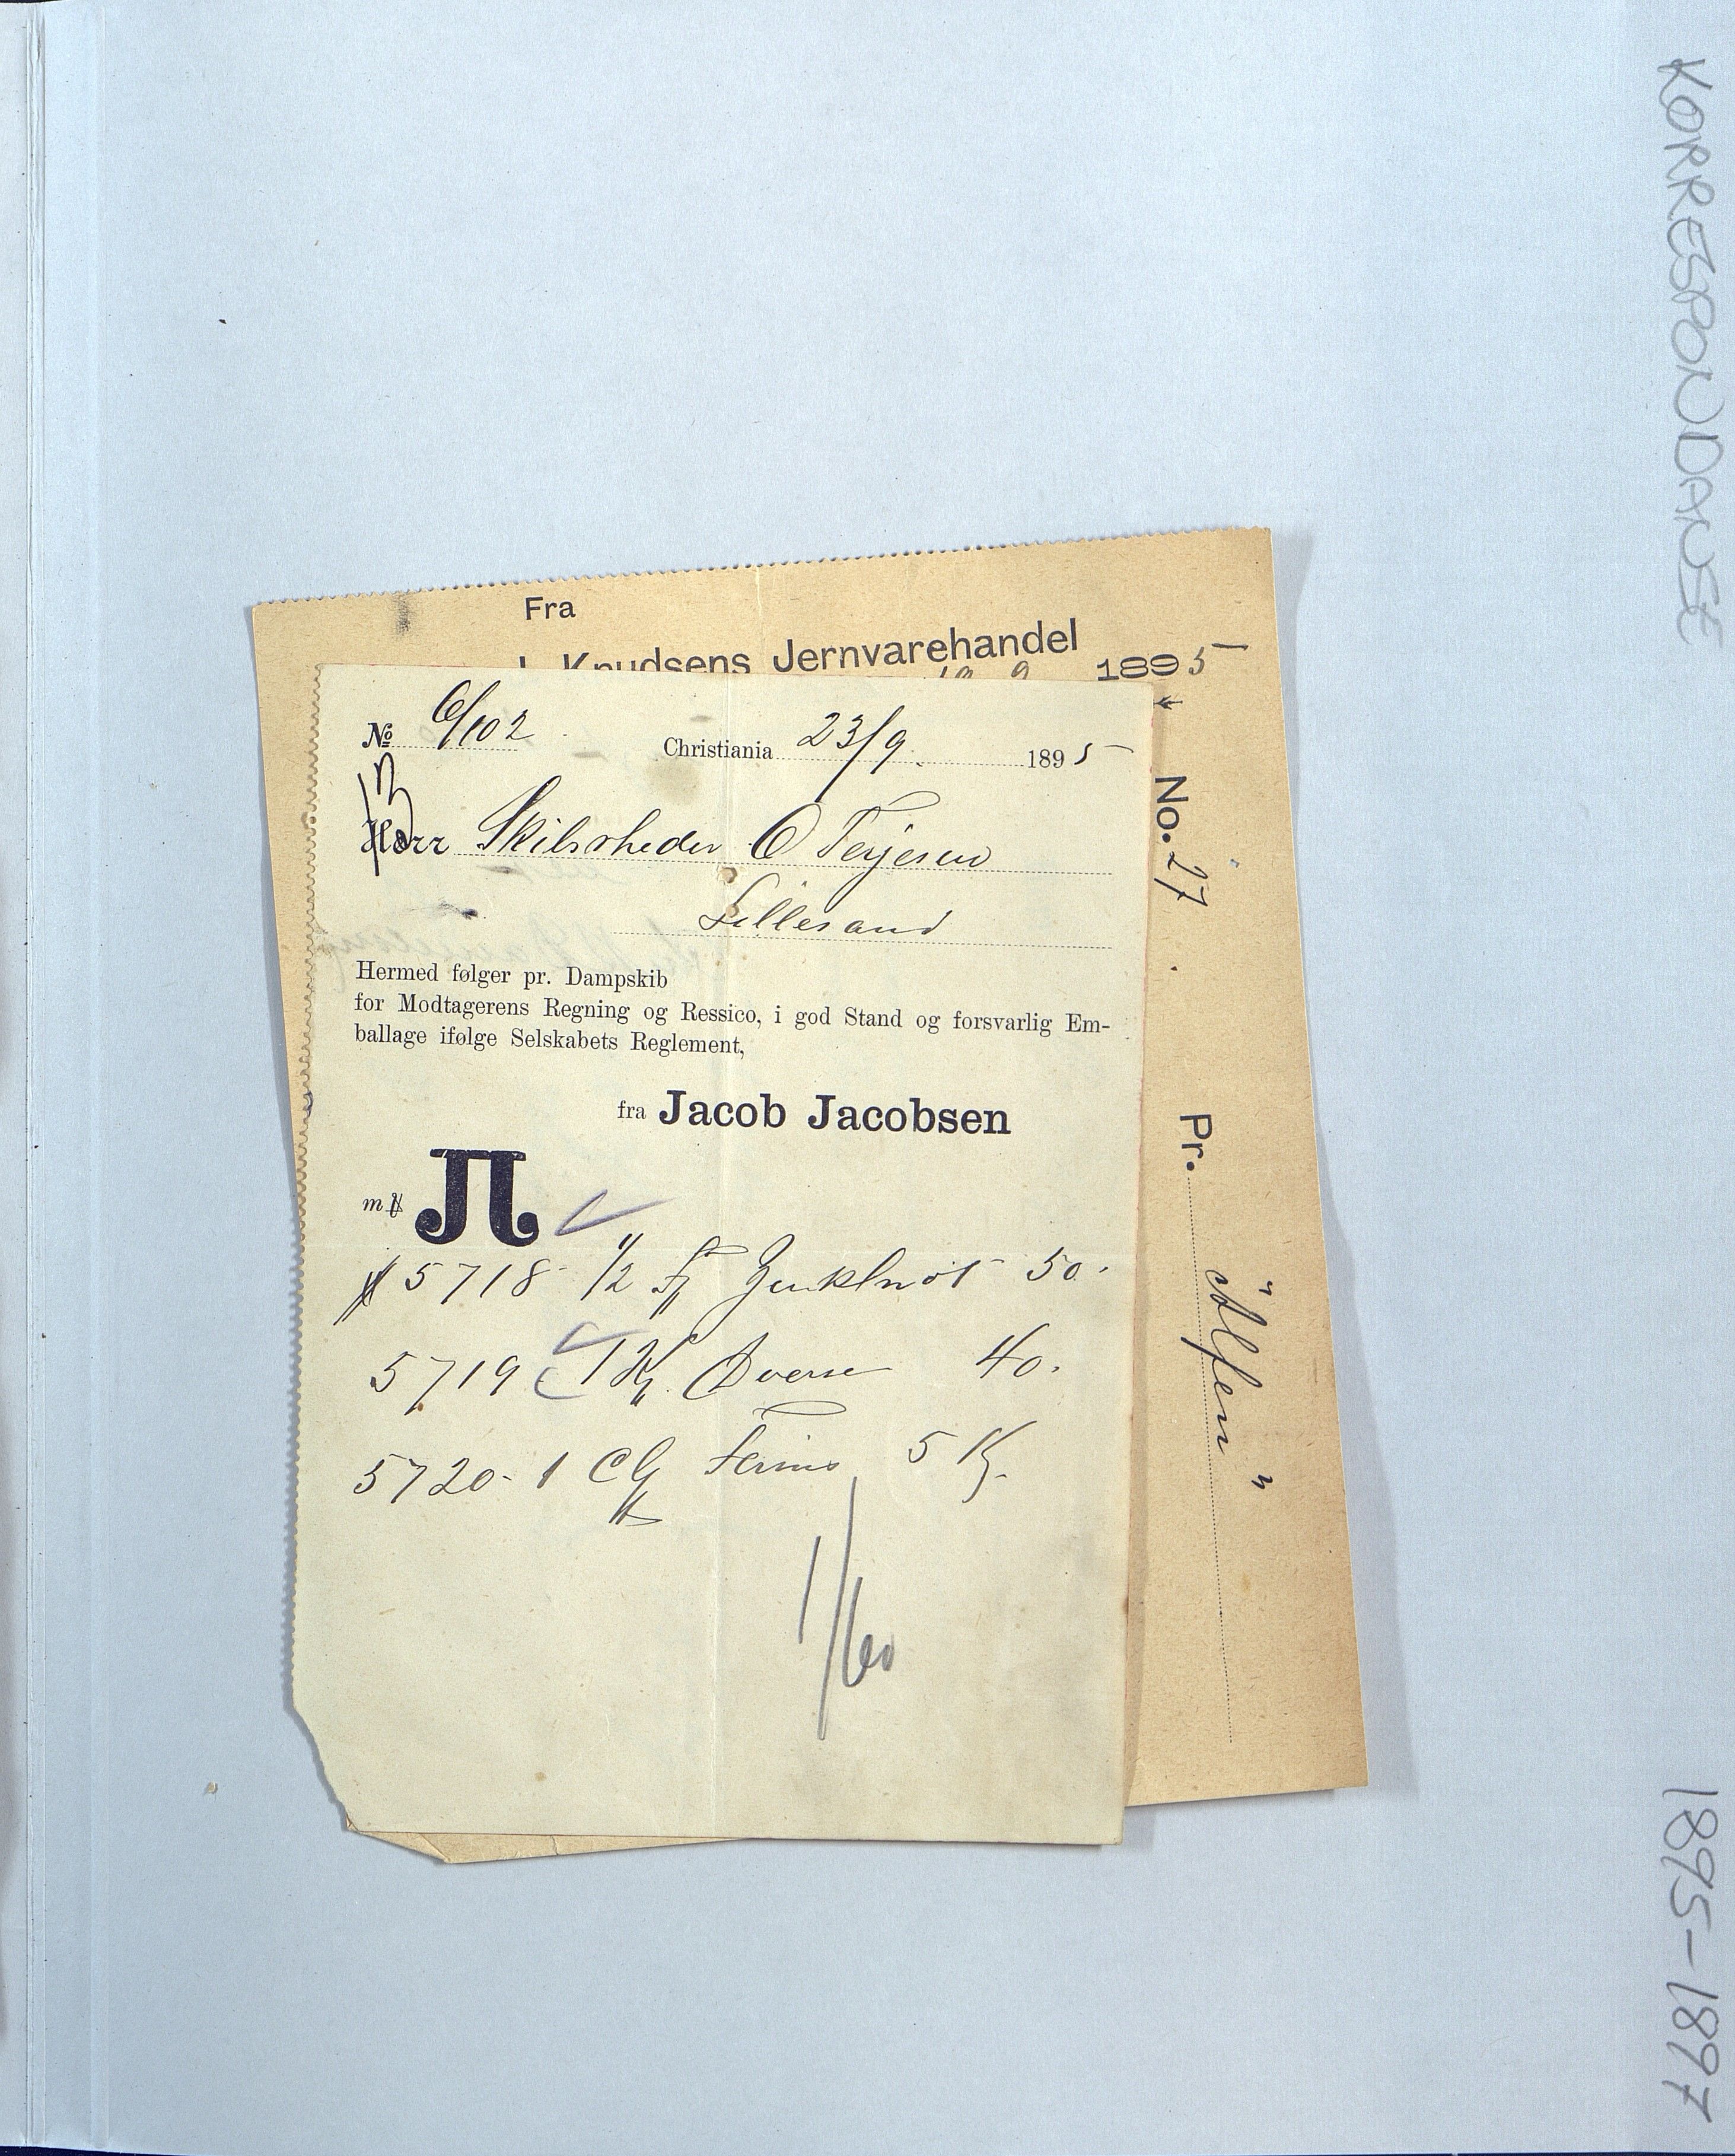 KORRESPONDANSE 1895-1897
Fra
Knudsens Jernvarehandel
1895
No. 27
Pr. "Alfen"
№ 6/102
Christiania 23/9 1895
Herr Skibsrheder O Terjesen
Lillesand
Hermed følger pr. Dampskib
for Modtagerens Regning og Ressico, i god Stand og forsvarlig Em-
ballage ifølge Selskabets Reglement,
fra Jacob Jacobsen
JL
5718 1/2 50.
5719 1 Diverse 40.
5720 - 1 5
1/60